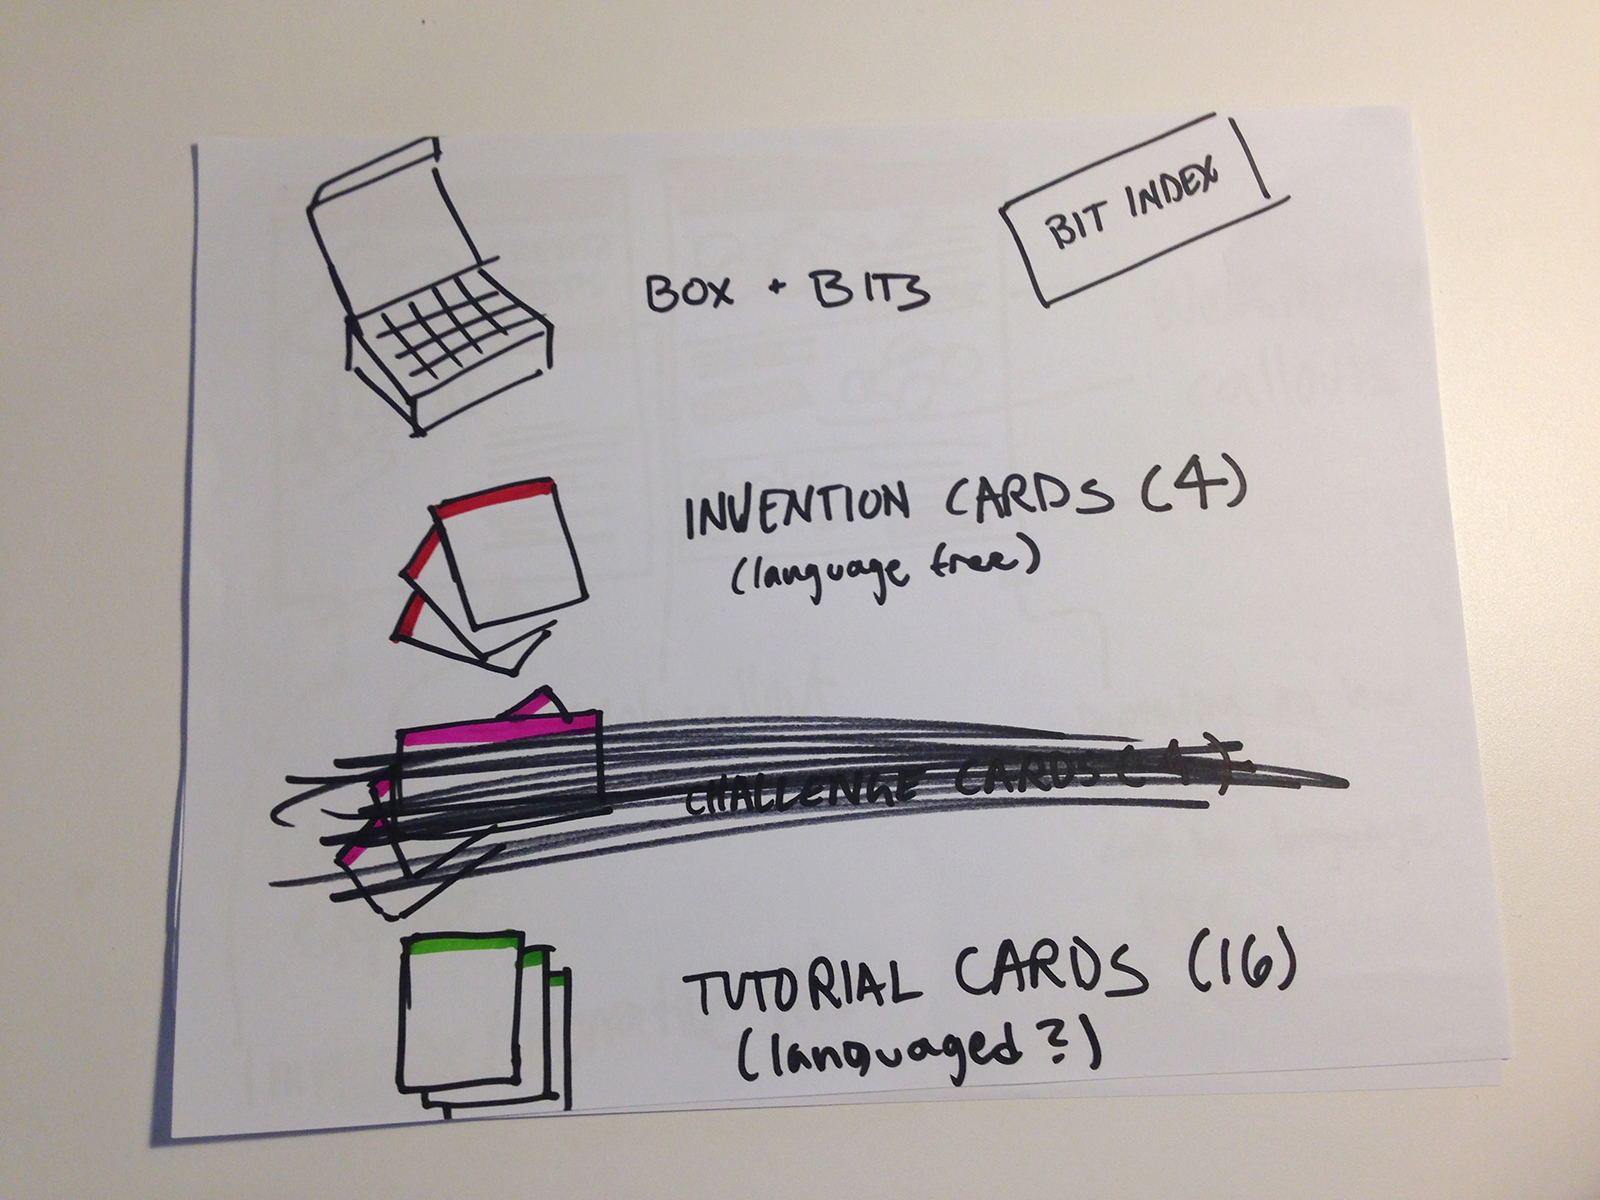 BIT INDEX
BOX + BITS
INVENTION CARDS (4)
(language free)
CHALLENGE CARDS (4)
TUTORIAL CARDS (16)
(languaged?)